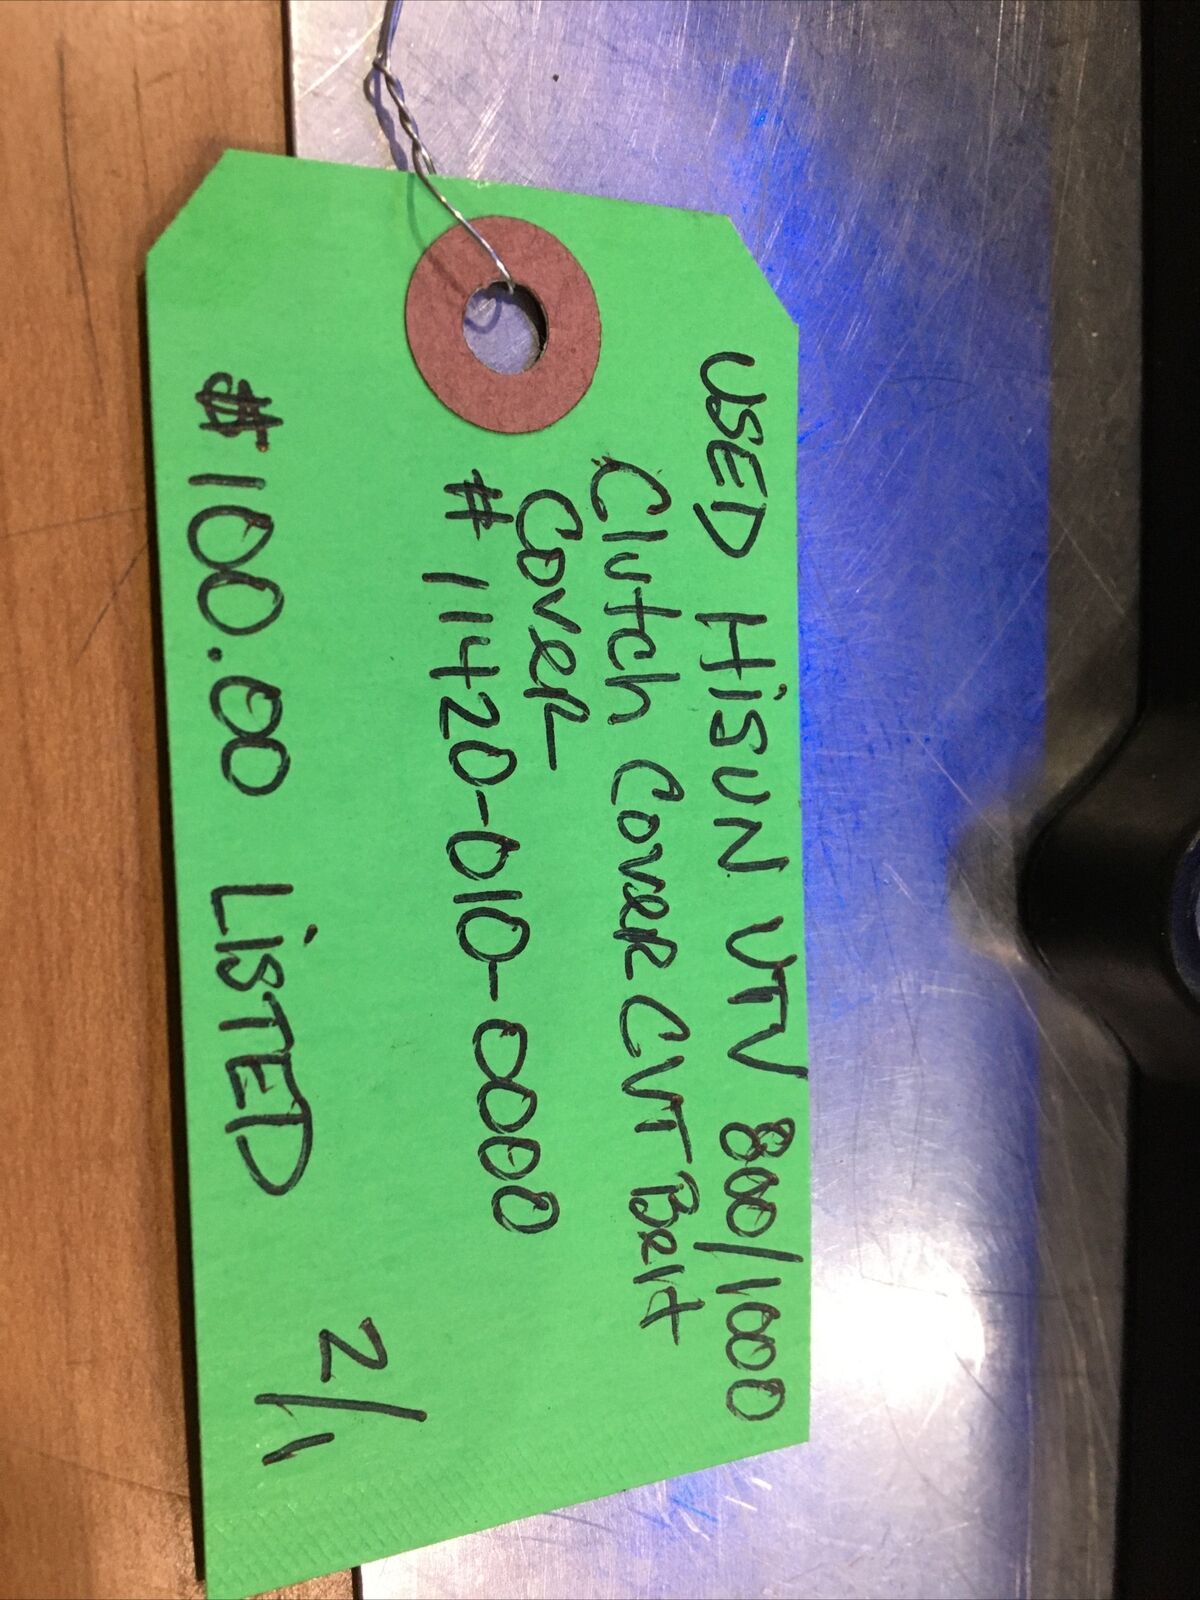 USED HiSUN UTV 800/1000
Clutch Cover CVT Belt
Cover
# 11420-010-0000
$100.00 LiSTED
2/1